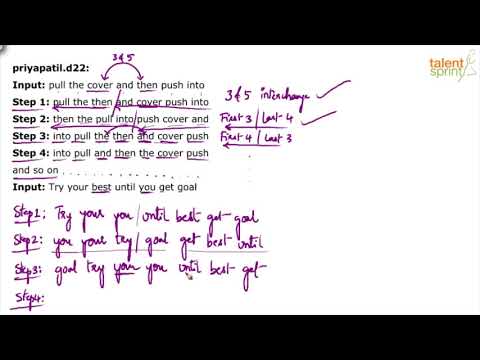 talent
sprint
3 & 5
priyapatil.d22:
Input: pull the cover and then push into
Step 1: pull the then and cover push into
Step 2: then the pull into push cover and
Step 3: into pull the then and cover push
Step 4: into pull and then the cover push
and so on
Input: Try your best until you get goal
3 & 5 interchange
First 3 / Last 4
First 4 / Last 3
Step1: Try your you / until best get goal
Step2: you your try / goal get best until
Step3: goal try your you until best get
Step4: